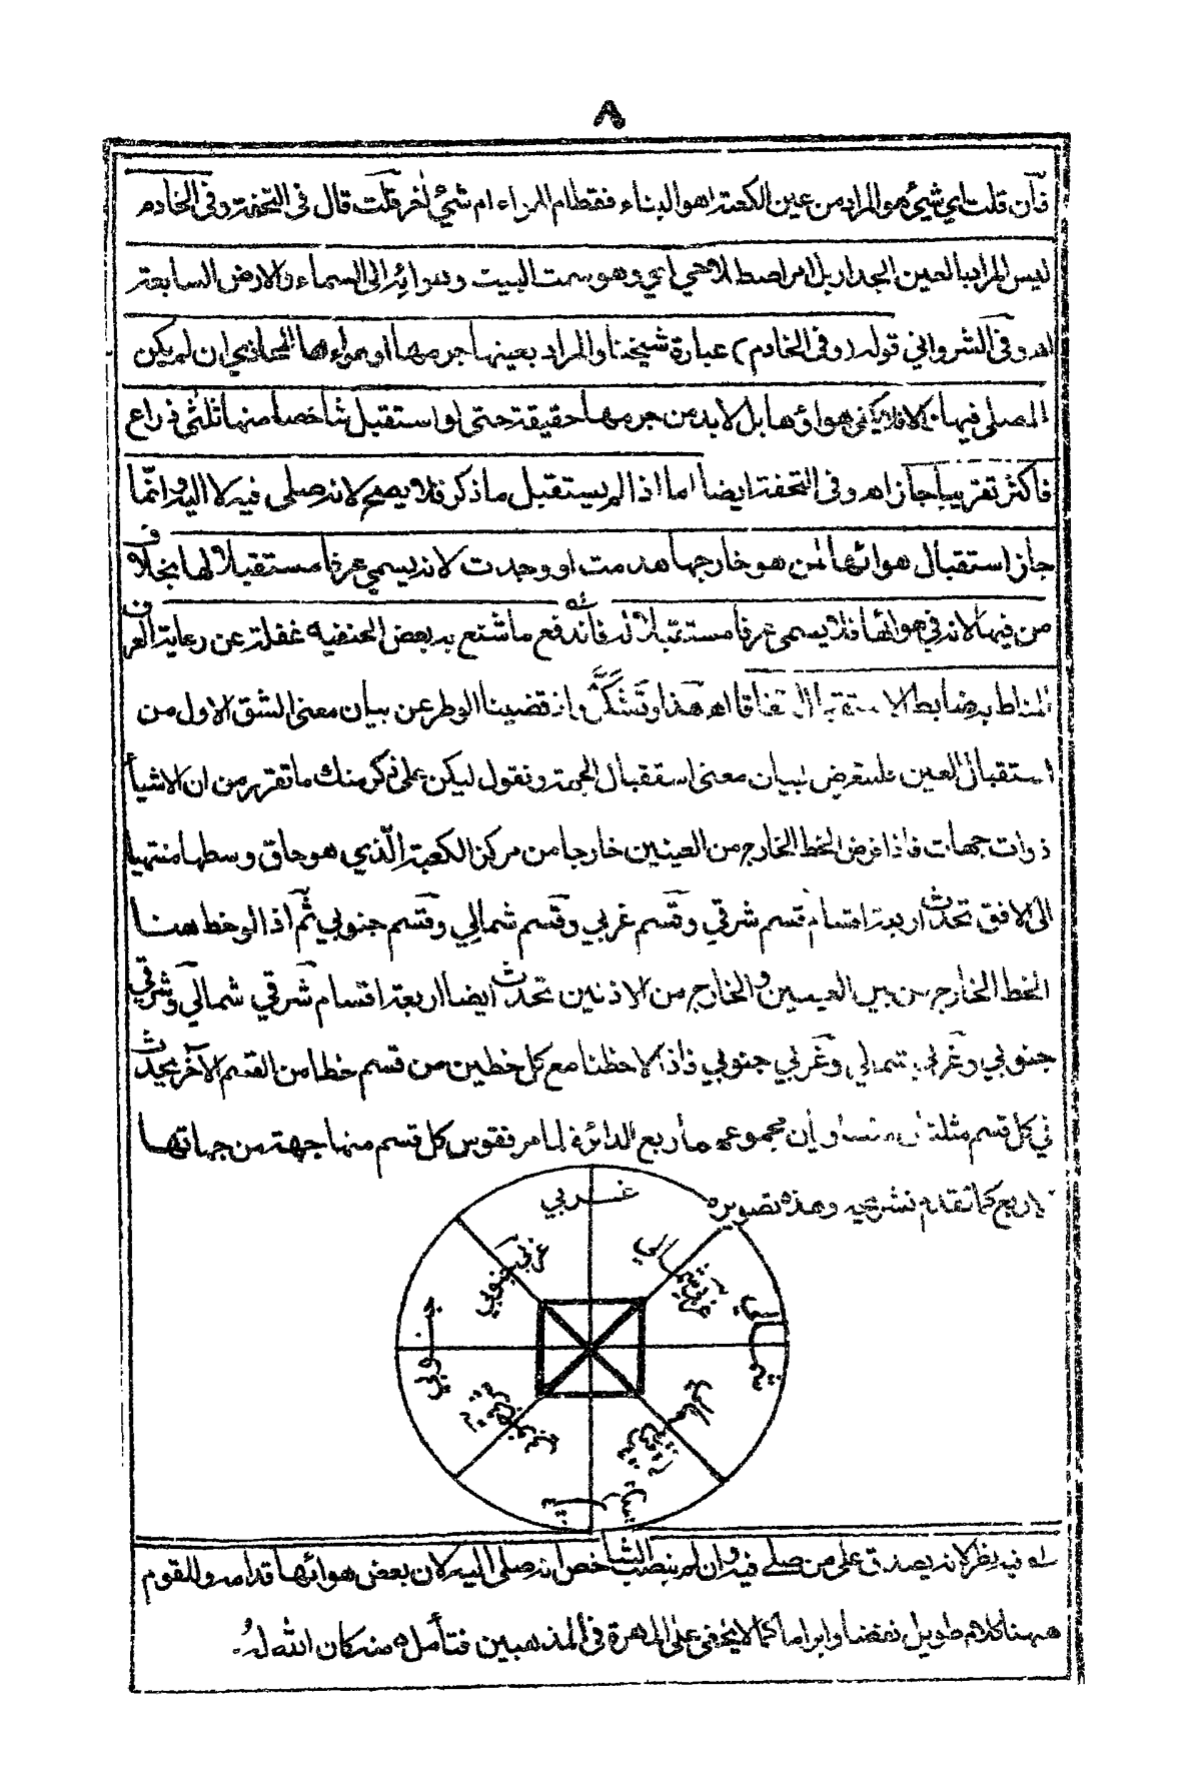 ٨
فآن قلت اي شيئ هو المراد من عين الكعبة اهو البناء فقط ام الهواء ام شيئ اٰخر قلت قال في التحفة وفي الخادم
ليس المراد بالعين الجدار بل امر اصطلاحي اي وهو سمت البيت وهوائه الى السماء والارض السابعة
اه وفي الشرواني قوله (وفي الخادم) عبارة شيخنا والمراد بعينها جرمها او هواءها المحاذي ان لم يكن
المصلي فيها والا فلا يكفي هواؤها بل لا بد من جرمها حقيقة حتى لو استقبل شاخصا منها ثلثي ذراع
فاكثر تقريبا جاز اه وفي التحفة ايضا اما اذا لم يستقبل ما ذكر فلا يصح لانه صلى فيه لا اليه وانّما
جاز استقبال هوائها لمن هو خارجها هدمت او وجدت لانه يسمى عرفا مستقبلا لها بخلاف
من فيها لانه في هوائها فلا يسمى عرفا مستقبلا له فاندفع ما شنع به بعض الحنفيه غفلة عن رعاية العرف
المناط به ضابط الاستقبال اتفاقا اه هذا وتشكّر واذ قضينا الوطر عن بيان معنى الشق الاول من
استقبال العين فلنتعرض لبيان معنى استقبال الجهة ونقول ليكن على ذكر منك ما تقرر من ان الاشيأ
ذوات جهات فاذا فرض الخط الخارج من العينين خارجا من مركز الكعبة الّذي هو حاق وسطها منتهيا
الى الافق تحدث اربعة اقسام قسم شرقي وقسم غربي وقسم شمالي وقسم جنوبي ثم اذا لوحظ هنا
الخط الخارج من بين العينين والخارج من الاذنين تحدث ايضا اربعة اقسام شرقي شمالي وشرقي
جنوبي وغربي شمالي وغربي جنوبي فاذا لاحظنا مع كل خطين من قسم خطا من القسم الآخر يحدث
في كل قسم مثلثان متساويان مجموعهما ربع الدائرة لما مر فقوس كل قسم منها جهة من جهاتها
الاربع كما تقدم تشريحه وهذه تصويره
غربي
غربي جنوبي
غربي شمالي
جنوبي
شمالي
جنوبي شرقي
شرقي شمالي
شرقي
له فيه نظر لانه يصدق على من صلى فيه وان لم ينصب الشاخص انه صلى اليه لان بعض هوائها قدامه وللقوم
ههنا كلام طويل نقضا وابراما كما لا يخفى على المهرة في المذهبين فتأمل ه منه كان الله لهُ